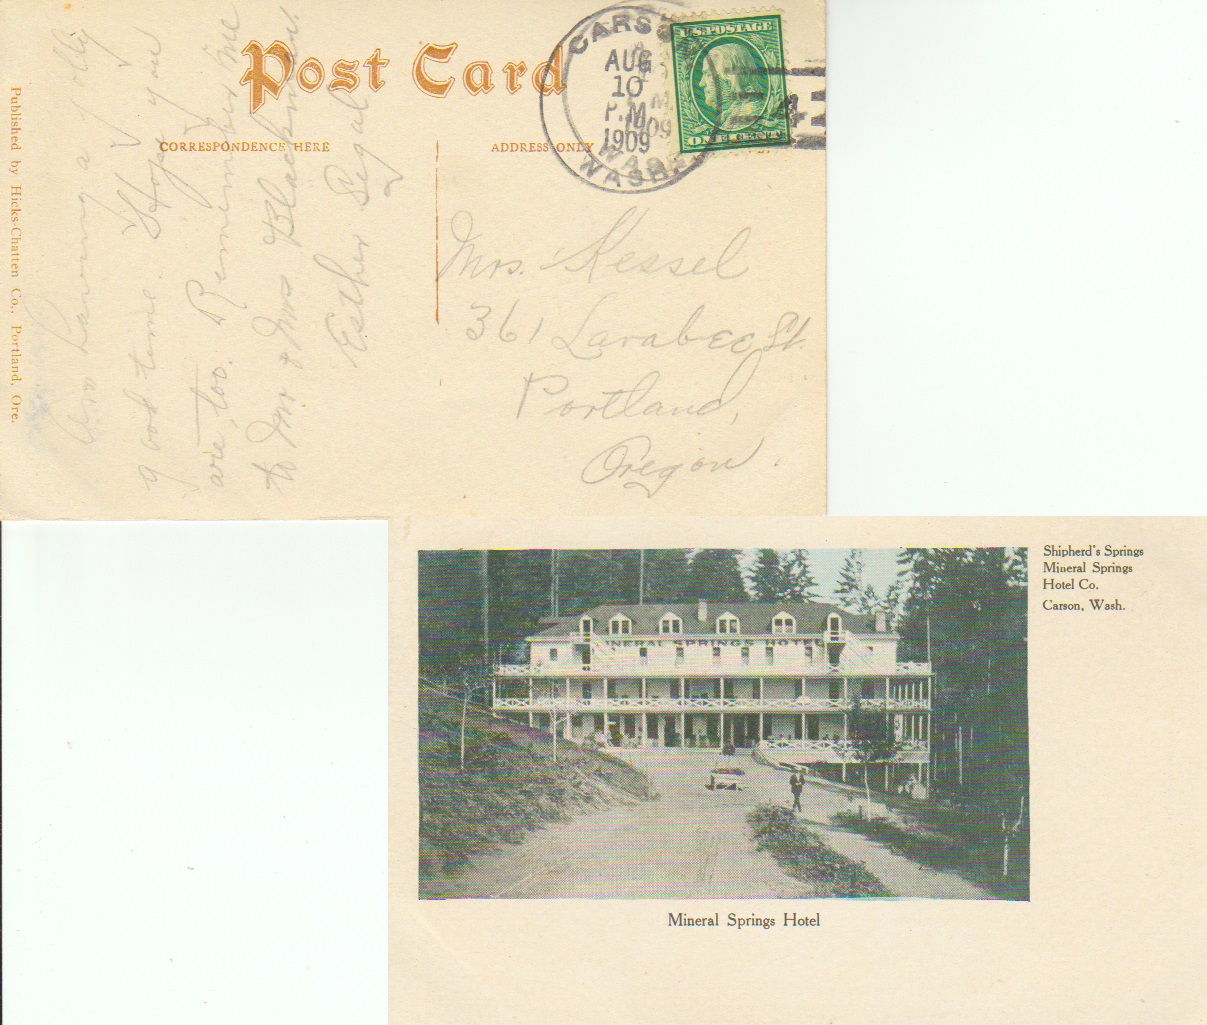 Post Card
CORRESPONDENCE HERE
ADDRESS ONLY
Published by Hicks-Chatten Co., Portland, Ore.
CARSON
AUG
10
P.M
1909
WASH.
U.S. POSTAGE
ONE CENT
4
Am having a jolly
good time. Hope you
are, too. Remember me
to Mr & Mrs Blackman.
Esther Segal
Mrs. Kessel
361 Larabee St.
Portland,
Oregon.
Shipherd's Springs
Mineral Springs
Hotel Co.
Carson, Wash.
MINERAL SPRINGS HOTEL
Mineral Springs Hotel